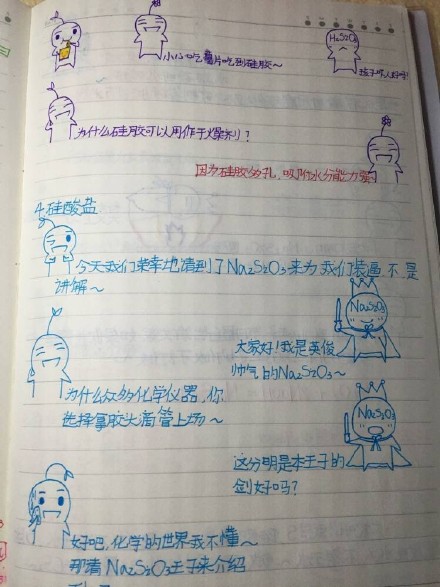 小心吃薯片吃到硅胶～
H₂SiO₃
孩子咋认好吗!
为什么硅胶可以用作干燥剂?
因为硅胶多孔,吸附水分能力强
4.硅酸盐
今天我们荣幸地请到了Na₂SiO₃来为我们装逼 不,是
讲解～
Na₂SiO₃
大家好!我是英俊
帅气的Na₂SiO₃～
为什么众多化学仪器,你
选择拿胶头滴管上场～
Na₂SiO₃
这分明是本王子的
剑好吗?
好吧,化学的世界我不懂～
那请Na₂SiO₃王子来介绍